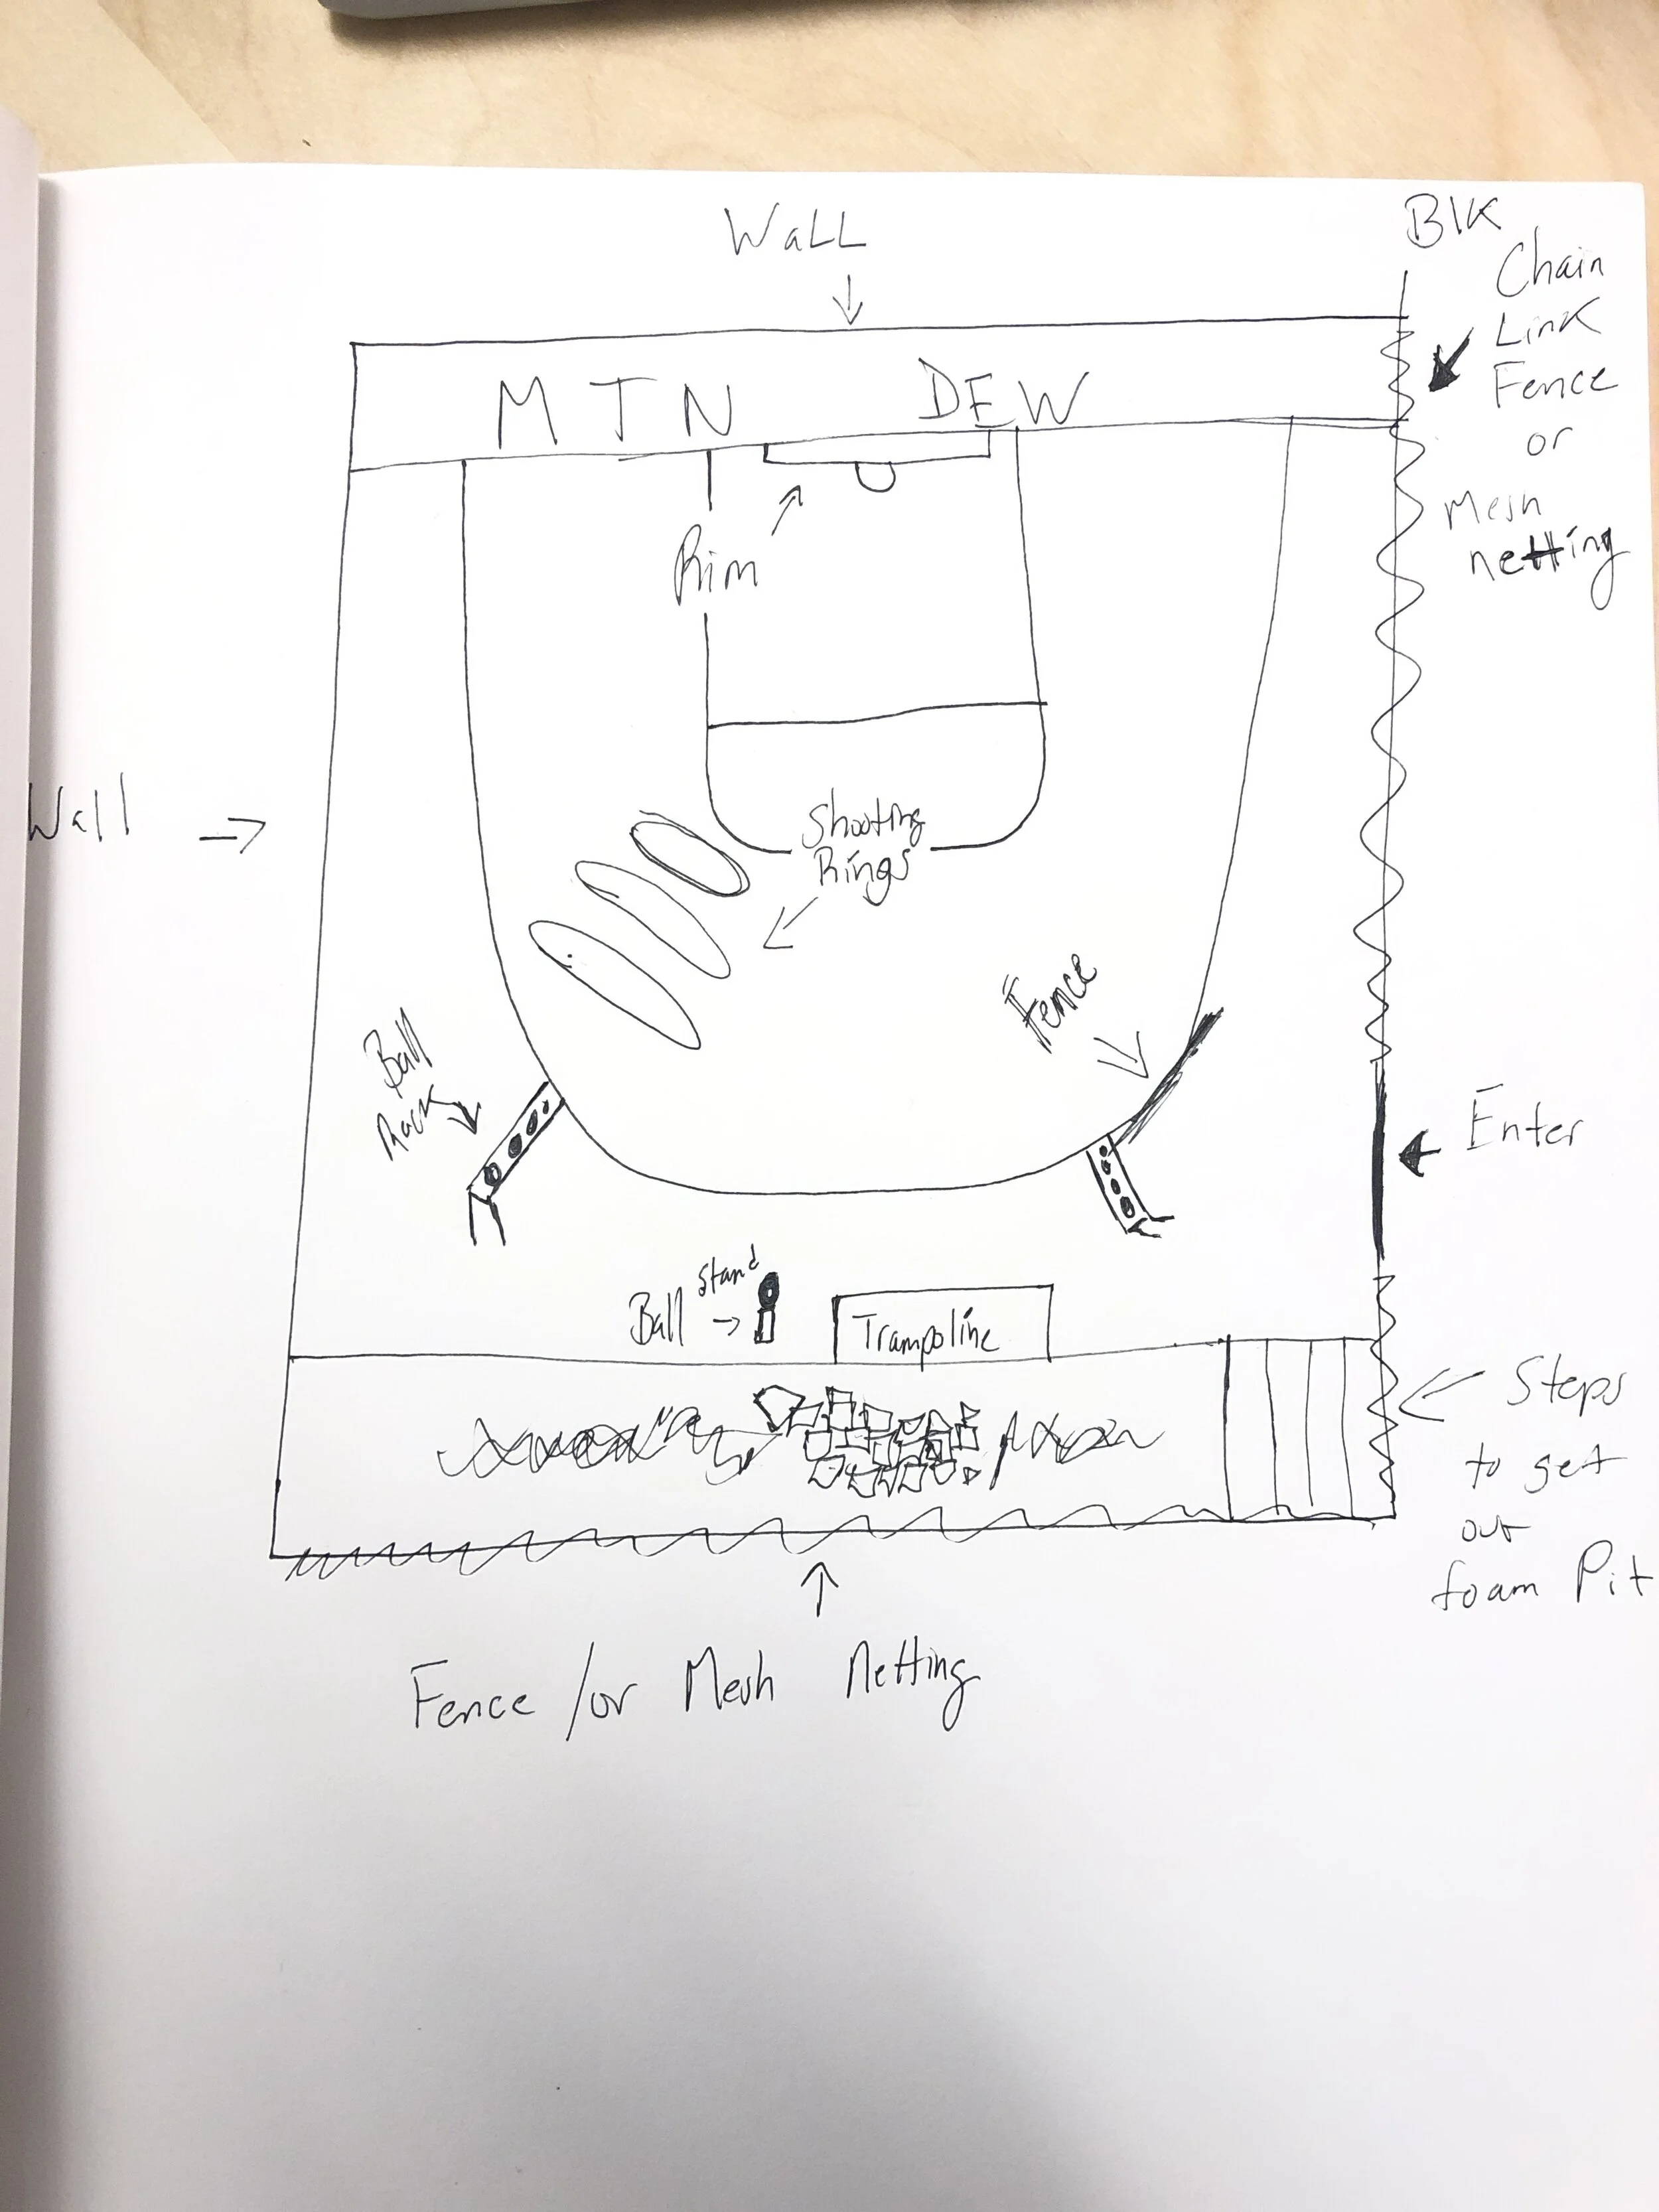 WaLL
BlK
Chain
Link
Fence
or
Mesh
netting
MTN DEW
Rim
Wall
Shooting
Rings
Fence
Ball
Rack
Enter
Ball Stand
Trampoline
Steps
to get
out
foam Pit
Fence /or Mesh Netting